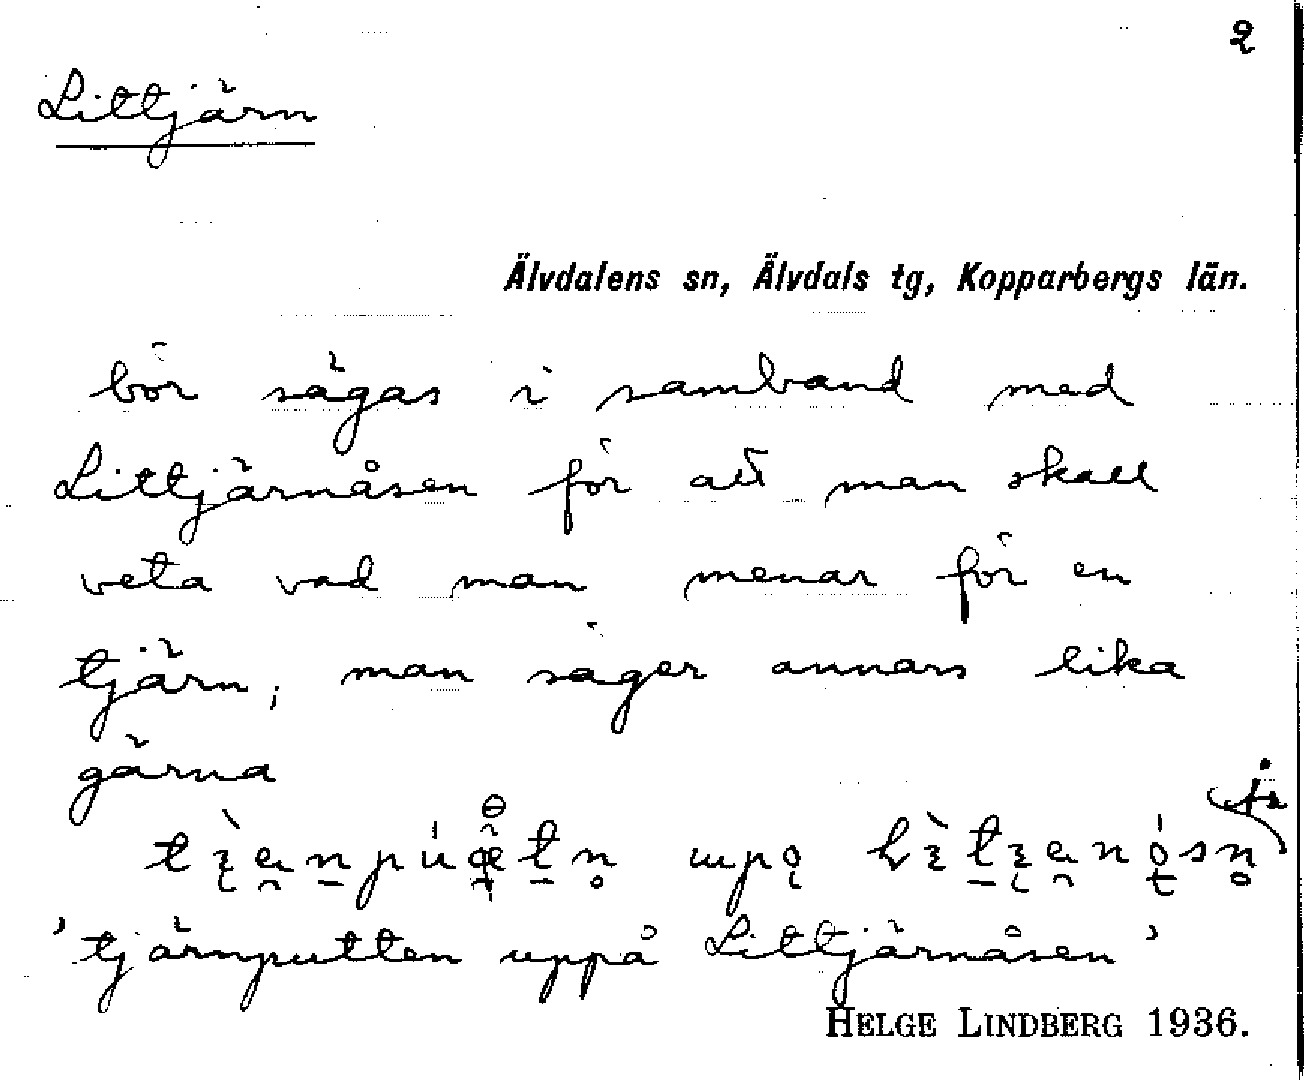 2
Littjärn
Älvdalens sn, Älvdals tg, Kopparbergs län.
bör sägas i samband med
Littjärnåsen för att man skall
veta vad man menar för en
tjärn, man säger annars lika
gärna
'tjärnputten uppå Littjärnåsen'
HELGE LINDBERG 1936.